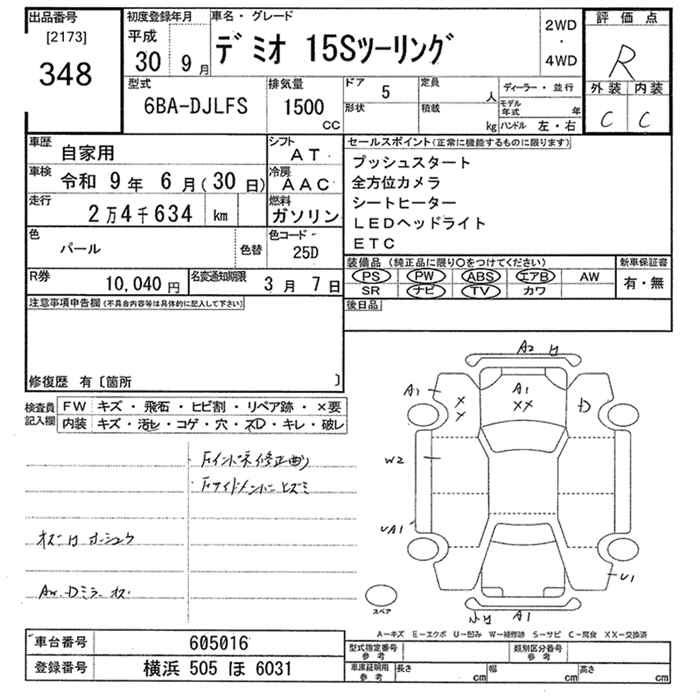 出品番号
[2173]
348
初度登録年月
平成
30 9月
車名・グレード
デミオ 15Sツーリング
2WD
・
4WD
評価点
R
外装 内装
C C
型式
6BA-DJLFS
排気量
1500
CC
ドア 5
形状
定員 人
積載 kg
ディーラー・並行
モデル年式 年
ハンドル 左・右
車歴
自家用
シフト
AT
車検
令和 9年 6月(30日)
冷房
AAC
走行
2万4千634 km
燃料
ガソリン
色
パール
色替
色コード
25D
R券
10,040円
名変通知期限
3月 7日
セールスポイント(正常に機能するものに限ります)
プッシュスタート
全方位カメラ
シートヒーター
LEDヘッドライト
ETC
装備品 (純正品に限り○をつけてください)
PS PW ABS エアB AW
SR ナビ TV カワ
新車保証書
有・無
後日品
注意事項申告欄(不具合内容等は具体的に記入して下さい)
修復歴 有〔箇所 〕
検査員
記入欄
FW キズ・飛石・ヒビ割・リペア跡・×要
内装 キズ・汚ヒ・コゲ・穴・ズD・キレ・破レ
・Fインパネ修正有り
・Fサイドメンバー ヒズミ
A2
A1
XX
A1
X
X
D
W2
UA1
U1
A1
スペア
A-キズ E-エクボ U-凹み W-補修跡 S-サビ C-腐食 XX-交換済
車台番号 605016
登録番号 横浜 505 ほ 6031
型式指定番号
参考
類別区分番号
参考
車庫証明用
参考
長さ cm
幅 cm
高さ cm